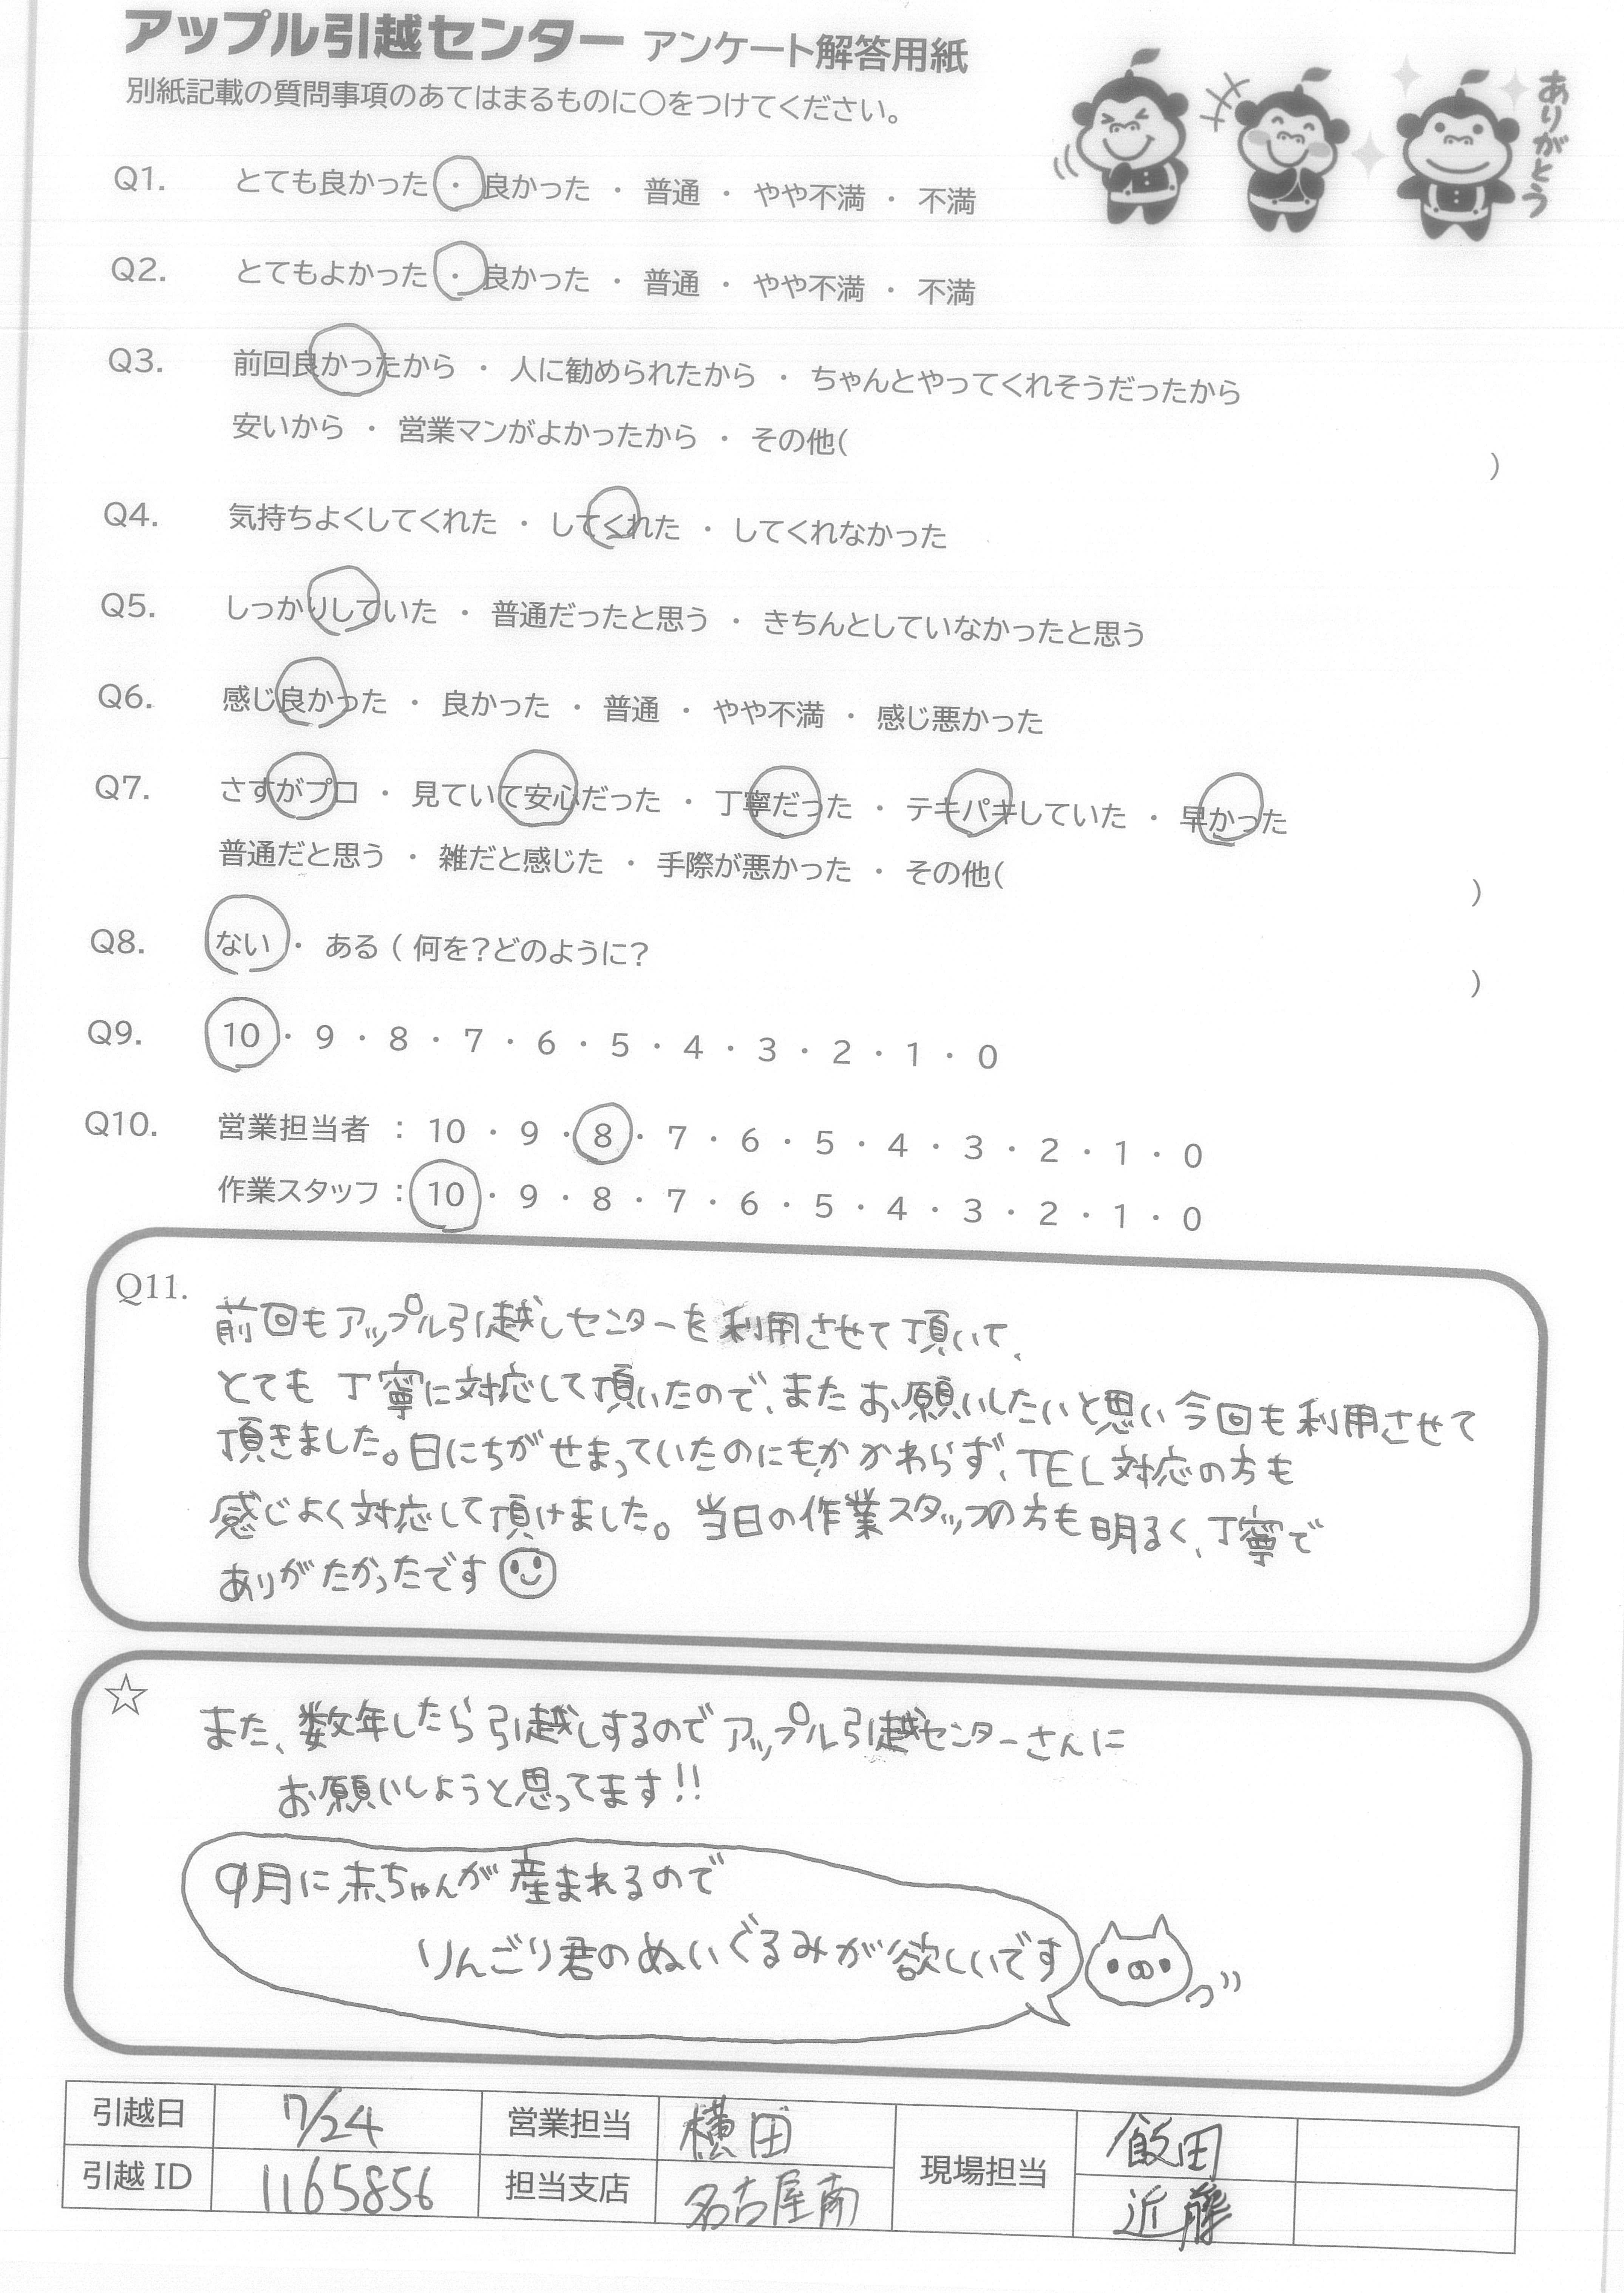 アップル引越センター アンケート解答用紙
別紙記載の質問事項のあてはまるものに○をつけてください。
ありがとう
Q1. とても良かった ・ 良かった ・ 普通 ・ やや不満 ・ 不満
Q2. とてもよかった ・ 良かった ・ 普通 ・ やや不満 ・ 不満
Q3. 前回良かったから ・ 人に勧められたから ・ ちゃんとやってくれそうだったから
安いから ・ 営業マンがよかったから ・ その他( )
Q4. 気持ちよくしてくれた ・ してくれた ・ してくれなかった
Q5. しっかりしていた ・ 普通だったと思う ・ きちんとしていなかったと思う
Q6. 感じ良かった ・ 良かった ・ 普通 ・ やや不満 ・ 感じ悪かった
Q7. さすがプロ ・ 見ていて安心だった ・ 丁寧だった ・ テキパキしていた ・ 早かった
普通だと思う ・ 雑だと感じた ・ 手際が悪かった ・ その他( )
Q8. ない ・ ある ( 何を?どのように? )
Q9. 10 ・ 9 ・ 8 ・ 7 ・ 6 ・ 5 ・ 4 ・ 3 ・ 2 ・ 1 ・ 0
Q10. 営業担当者 : 10 ・ 9 ・ 8 ・ 7 ・ 6 ・ 5 ・ 4 ・ 3 ・ 2 ・ 1 ・ 0
作業スタッフ : 10 ・ 9 ・ 8 ・ 7 ・ 6 ・ 5 ・ 4 ・ 3 ・ 2 ・ 1 ・ 0
Q11. 前回もアップル引越しセンターを利用させて頂いて、
とても丁寧に対応して頂いたので、またお願いしたいと思い今回も利用させて
頂きました。日にちがせまっていたのにもかかわらず、TEL対応の方も
感じよく対応して頂けました。当日の作業スタッフの方も明るく、丁寧で
ありがたかったです
☆ また、数年したら引越しするのでアップル引越センターさんに
お願いしようと思ってます!!
9月に赤ちゃんが産まれるので
りんごり君のぬいぐるみが欲しいです
引越日 7/24 営業担当 横田 現場担当 飯田
引越ID 1165856 担当支店 名古屋南 近藤